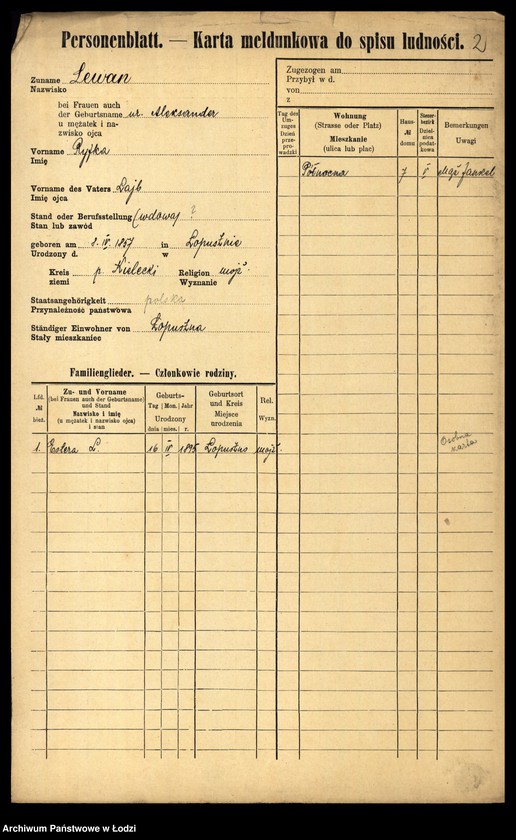 Personenblatt. — Karta meldunkowa do spisu ludności. 2
Zuname Lewan
Nazwisko
bei Frauen auch
der Geburtsname ur. Aleksander
u mężatek i na-
zwisko ojca
Vorname Ryfka
Imię
Vorname des Vaters Dajb
Imię ojca
Stand oder Berufsstellung (wdowa) ?
Stan lub zawód
geboren am 2. IV. 1857 in Łopusznie
Urodzony d. w
Kreis p. Kielecki Religion mojż.
ziemi Wyznanie
Staatsangehörigkeit polska
Przynależność państwowa
Ständiger Einwohner von Łopuszna
Stały mieszkaniec
Familienglieder. — Członkowie rodziny.
Lfd. № bież.
Zu- und Vorname
(bei Frauen auch der Geburtsname)
und Stand
Nazwisko i imię
(u mężatek i nazwisko ojca)
i stan
Geburts-
Tag | Mon. | Jahr
Urodzony
dnia | mies. | r.
Geburtsort
und Kreis
Miejsce
urodzenia
Rel.
Wyzn.
1. Estera L. 16 IV 1895 Łopuszno mojż.
Zugezogen am
Przybył w d.
von
z
Tag des
Um-
zuges
Dzień
prze-
prowadzki
Wohnung
(Strasse oder Platz)
Mieszkanie
(ulica lub plac)
Haus-
№
domu
Steuer-
bezirk
Dziel-
nica
podat-
kowa
Bemerkungen
Uwagi
Północna 7 II Mąż Jankel
Osobna
karta
Archiwum Państwowe w Łodzi